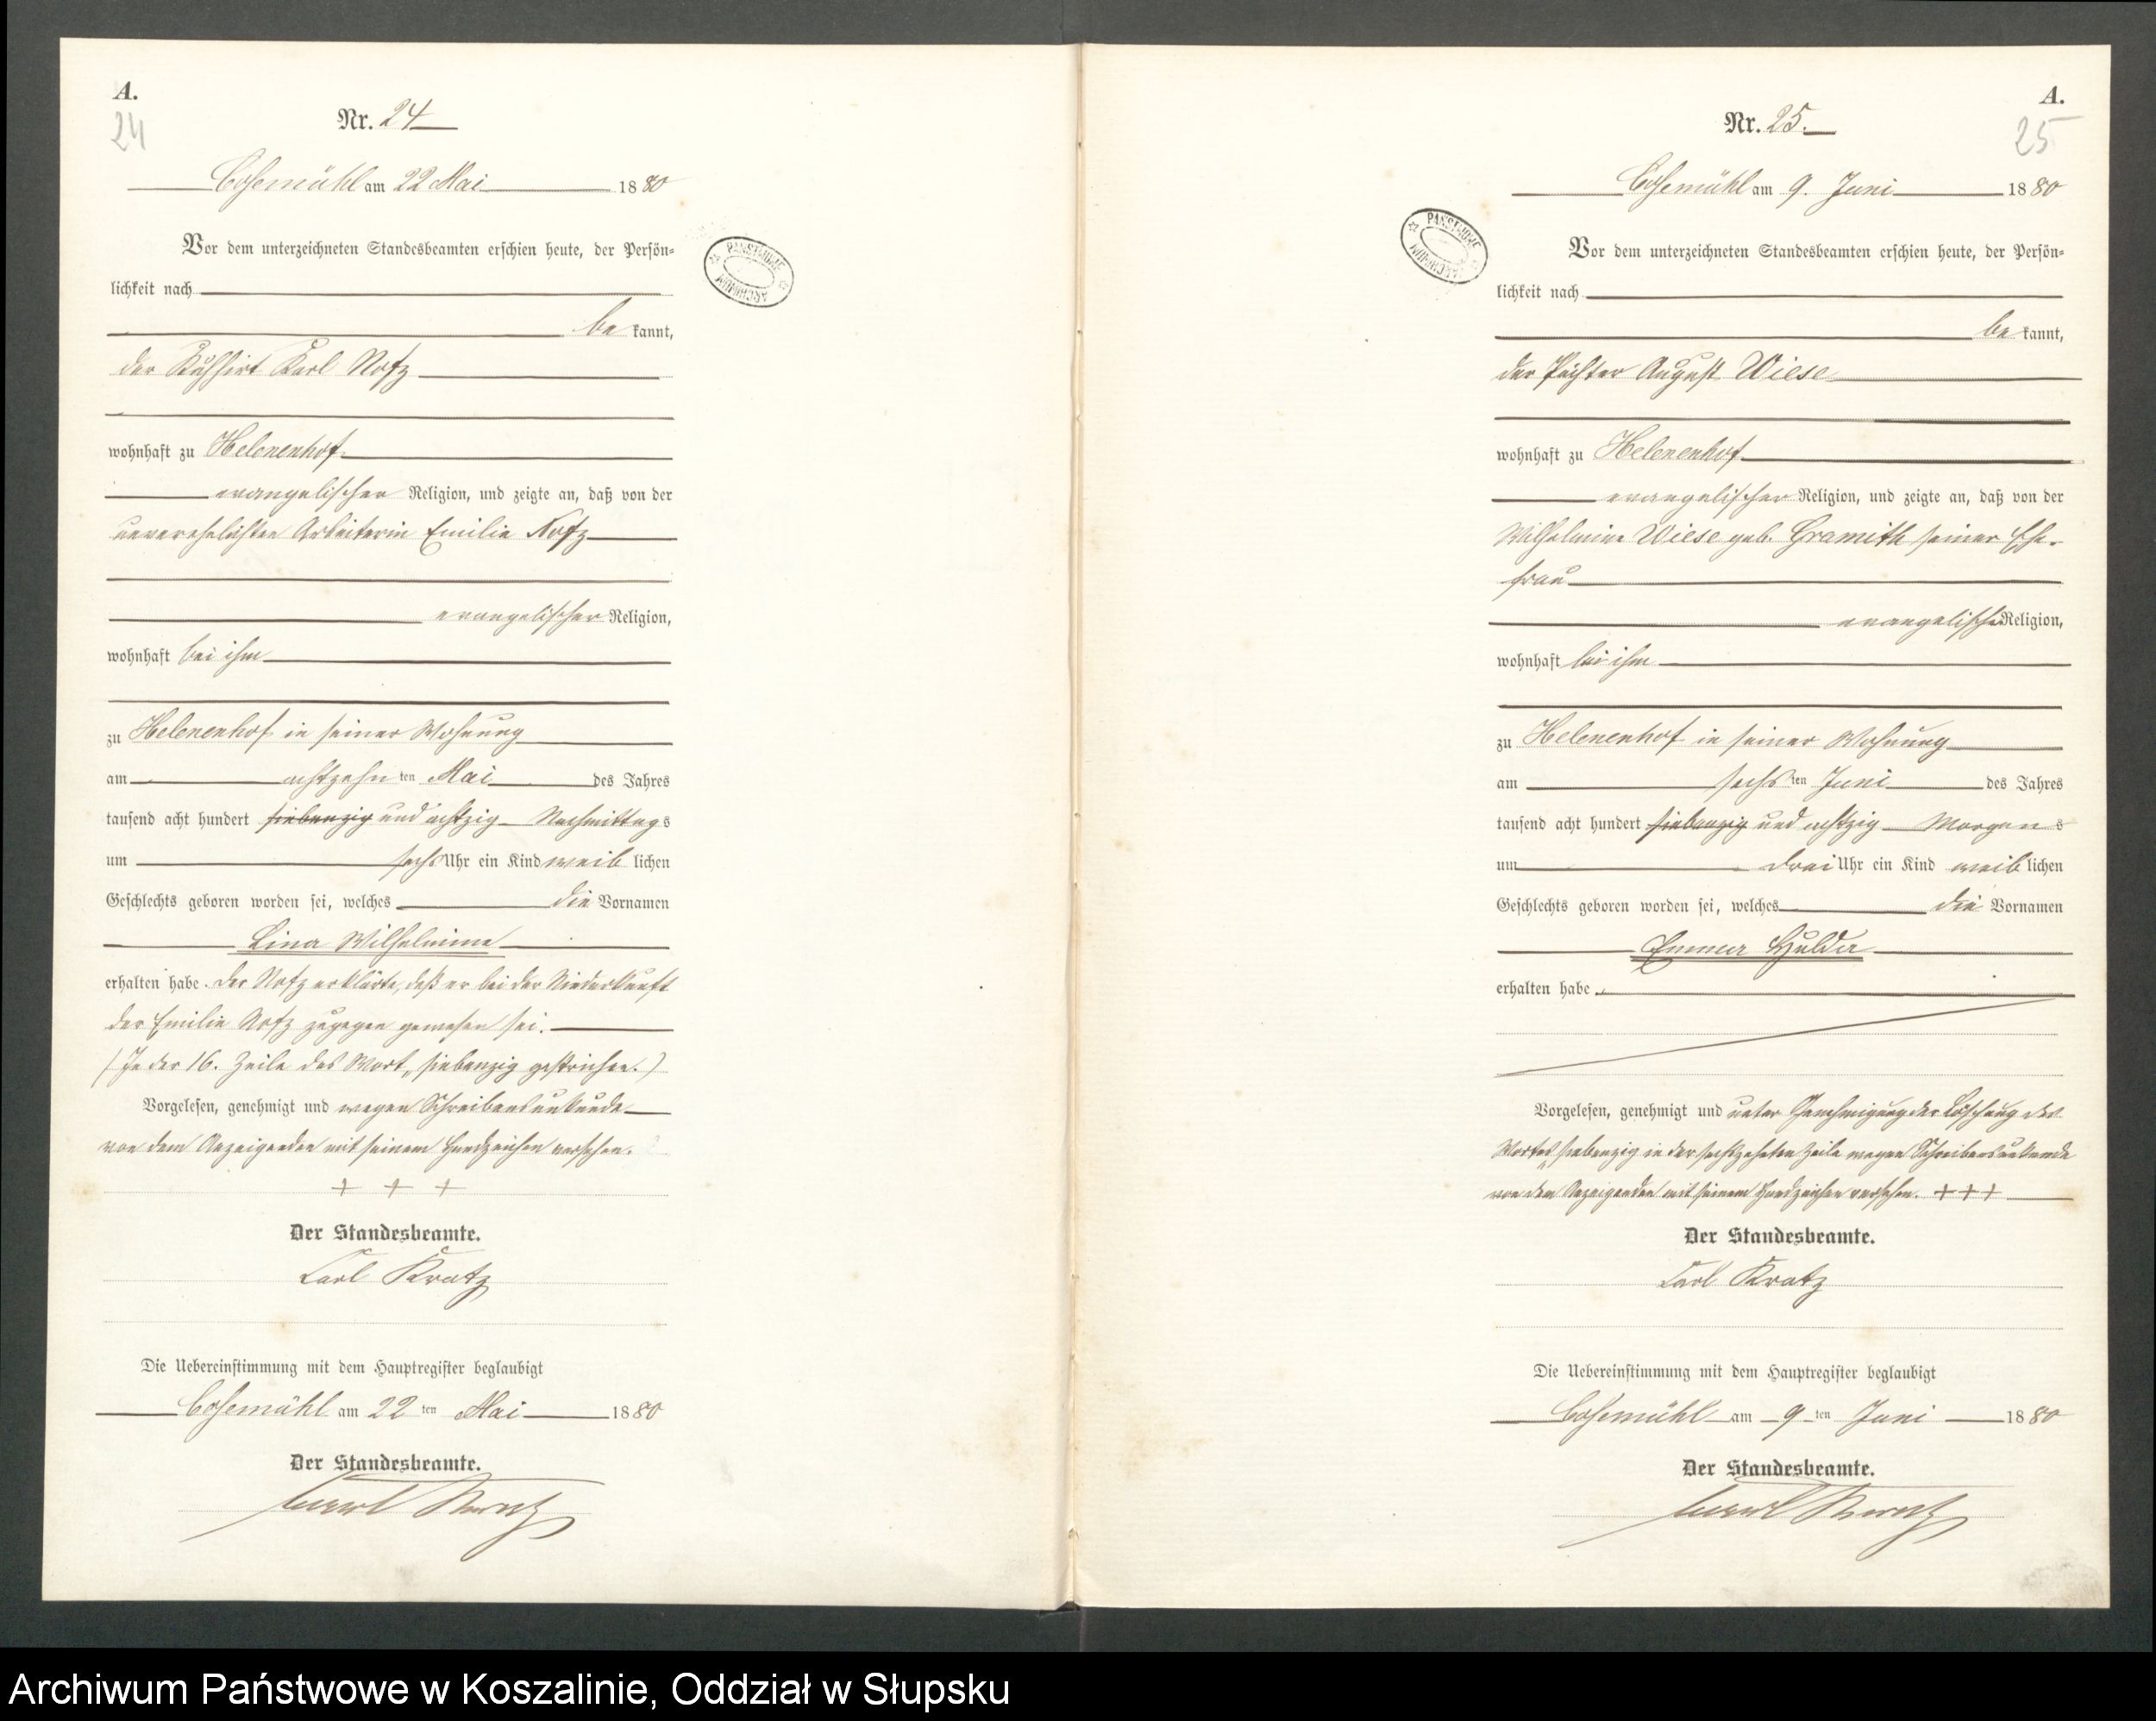 A.
24
Nr. 24
Cosemühl am 22 Mai 1880
Vor dem unterzeichneten Standesbeamten erschien heute, der Persön=
lichkeit nach
be kannt,
der Kuhhirt Karl
wohnhaft zu Helenenhof
evangelischer Religion, und zeigte an, daß von der
unverehelichten Arbeiterin Emilie
evangelischer Religion,
wohnhaft bei ihm
zu Helenenhof in seiner Wohnung
am achtzehn ten Mai des Jahres
tausend acht hundert siebenzig und achtzig Nachmittags
um sechs Uhr ein Kind weib lichen
Geschlechts geboren worden sei, welches die Vornamen
Lina Wilhelmine
erhalten habe. Der erklärte, daß er bei der Niederkunft
der Emilie zugegen gewesen sei.
(In der 16. Zeile das Wort „siebenzig gestrichen.)
Vorgelesen, genehmigt und wegen Schreibensunkunde
von dem Anzeigenden mit seinem Handzeichen versehen.
+ + +
Der Standesbeamte.
Carl Kratz
Die Uebereinstimmung mit dem Hauptregister beglaubigt
Cosemühl am 22 ten Mai 1880
Der Standesbeamte.
Carl Kratz
PAŃSTWOWE ARCHIWUM
A.
25
Nr. 25.
Cosemühl am 9. Juni 1880
Vor dem unterzeichneten Standesbeamten erschien heute, der Persön=
lichkeit nach
be kannt,
der Pächter August Wiese
wohnhaft zu Helenenhof
evangelischer Religion, und zeigte an, daß von der
Wilhelmine Wiese geb. Gramith seiner Ehe-
frau
evangelischer Religion,
wohnhaft bei ihm
zu Helenenhof in seiner Wohnung
am sechs ten Juni des Jahres
tausend acht hundert siebenzig und achtzig Morgens
um drei Uhr ein Kind weib lichen
Geschlechts geboren worden sei, welches die Vornamen
Emma Hulda
erhalten habe.
Vorgelesen, genehmigt und unter Genehmigung der Löschung des
Wortes „siebenzig in der sechszehnten Zeile wegen Schreibensunkunde
von dem Anzeigenden mit seinem Handzeichen versehen. +++
Der Standesbeamte.
Carl Kratz
Die Uebereinstimmung mit dem Hauptregister beglaubigt
Cosemühl am 9 ten Juni 1880
Der Standesbeamte.
Carl Kratz
PAŃSTWOWE ARCHIWUM
Archiwum Państwowe w Koszalinie, Oddział w Słupsku